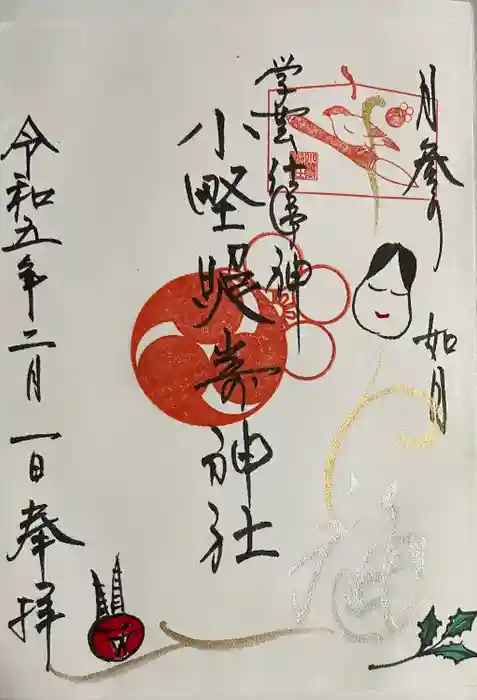 月参り 如月
学芸仕事神
小野照嵜神社
令和五年二月一日奉拝
福